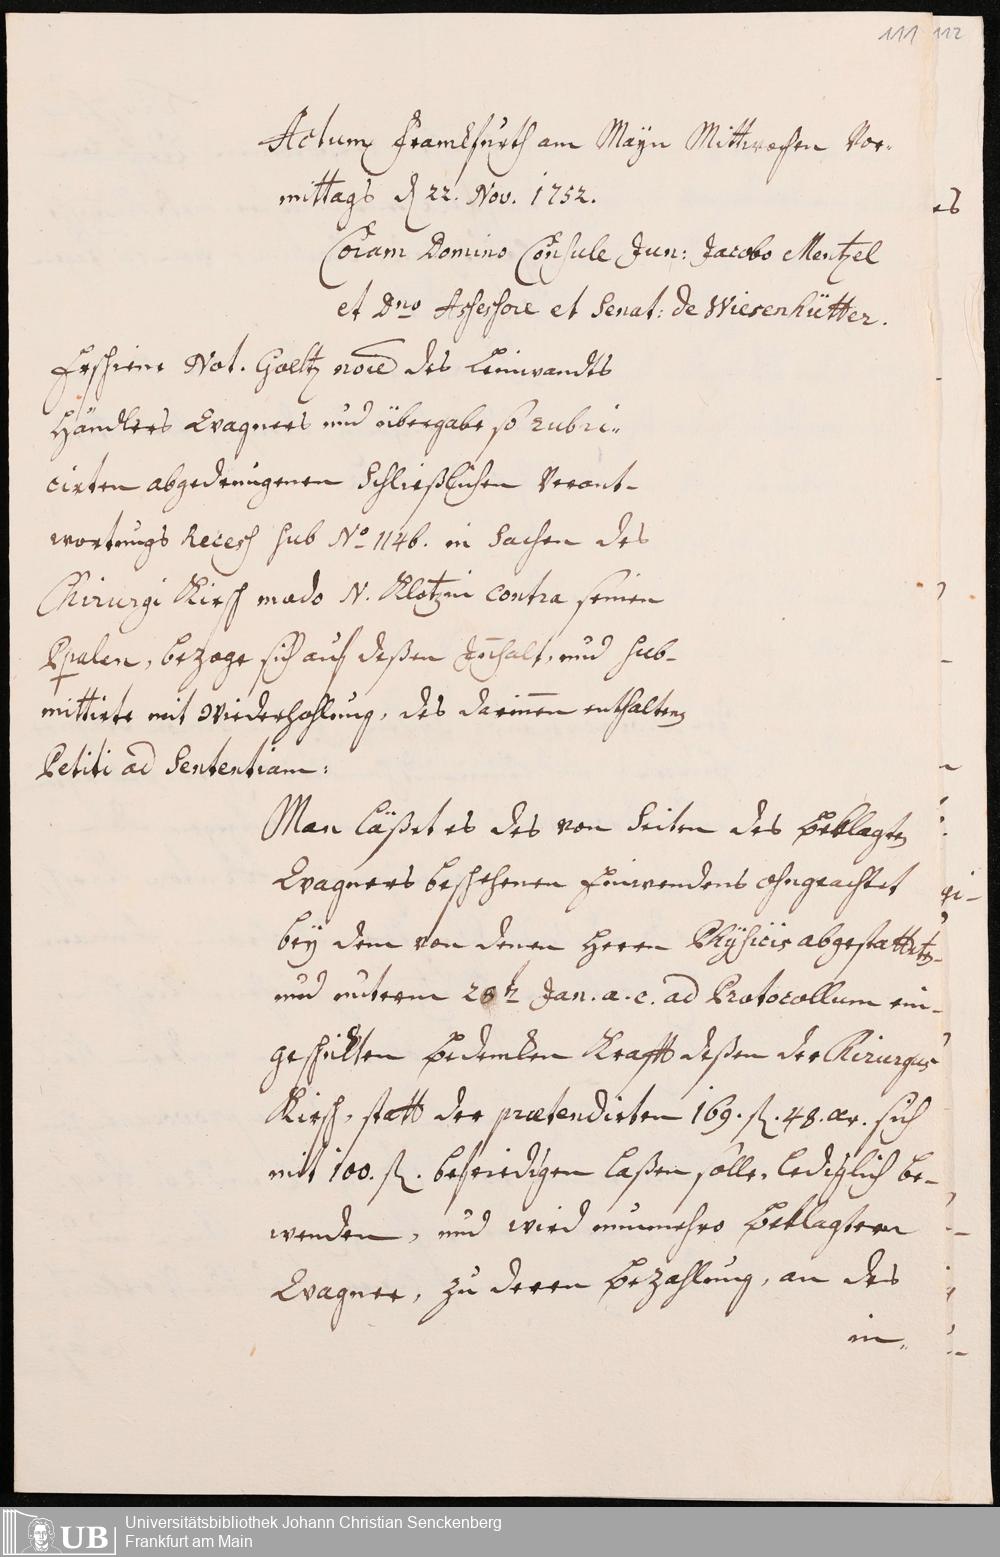 111 112
Actum Franckfurth am Mayn Mittwochen Vor-
mittags d 22. Nov. 1752.
Coram Domino Consule Jun: Jacobo Mentzel
et Dno Assessore et Senat: de Wiesenhütter.
Erschiene Not. Goeltz noie des Leinwandts
Händlers Wagners und übergabe so rubri-
cirten abgedrungenen Schließlichen Verant-
wortungs Recess sub No 1146. in Sachen des
Chirurgi Kirsch modo N. Klotzii contra seinen
Ppalen, bezoge sich auf deßen Innhalt, und sub-
mittirte mit Wiederhohlung, des darinnen enthaltenen
Petiti ad Sententiam:
Man läßet es des von Seiten des Beklagten
Wagners beschehenen Einwendens ohngeachtet
bey dem von denen Herren Physicis abgestatteten
und unterm 28t Jan. a. c. ad Protocollum ein-
geschickten Bedencken Krafft deßen der Chirurgus
Kirsch, statt der praetendirten 169. fl. 48. xr. sich
mit 100. fl. befriedigen laßen solle, lediglich be-
wenden, und wird nunmehro Beklagtem
Wagner, zu deren Bezahlung, an des
in-
UB
Universitätsbibliothek Johann Christian Senckenberg
Frankfurt am Main